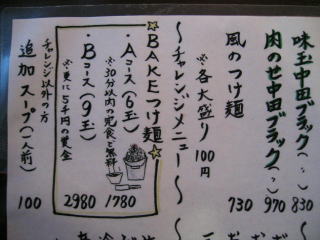 味玉中田ブラック(〃) 830
肉のせ中田ブラック(〃) 970
風のつけ麺 730
※各大盛り100円
〜チャレンジメニュー〜
☆BAKEつけ麺☆
・Aコース(6玉) 1780
※30分以内の完食で無料
・Bコース(9玉) 2980
※更に5千円の賞金
チャレンジ以外の方
追加スープ(一人前) 100